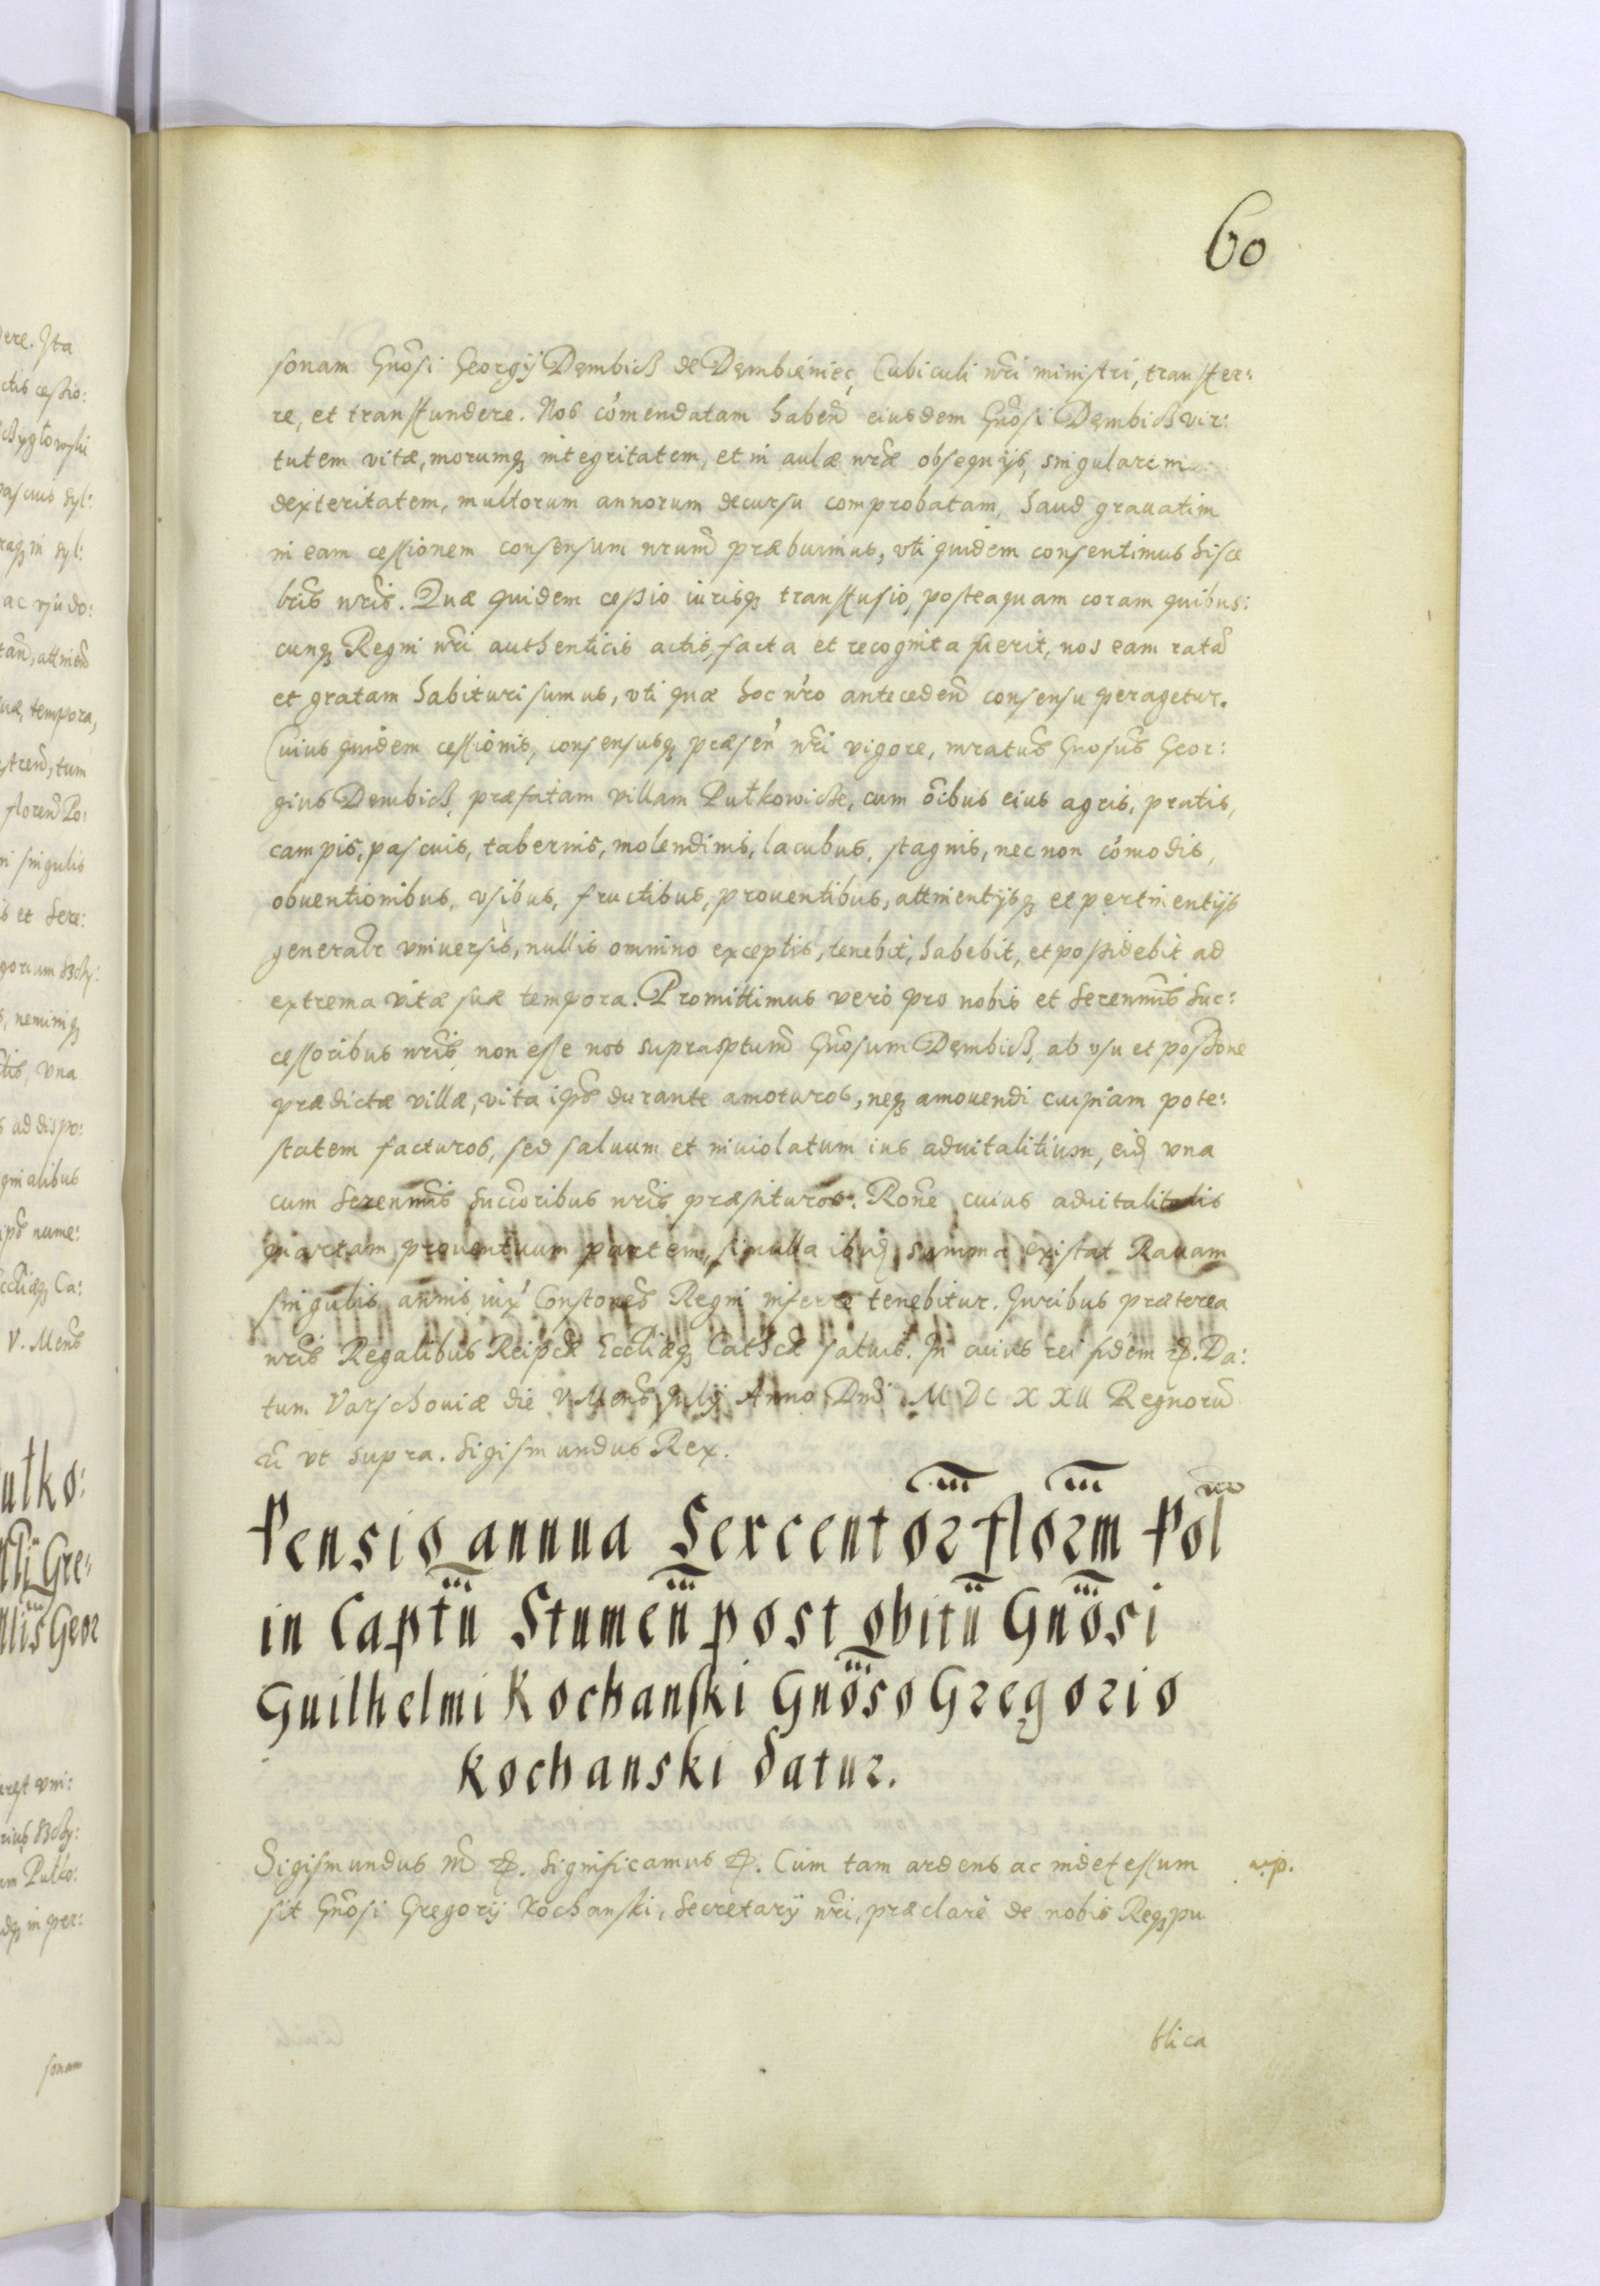 60
sonam Gnosi Georgij Dęmbicß de Dęmbieniec, Cubiculi nri ministri, transfer:
re, et transfundere. Nos comendatam haben eiusdem Gnosi Dęmbicß vir:
tutem vitæ, morumq integritatem, et in aulæ nræ obsequijs, singularem
dexteritatem, multorum annorum decursu comprobatam, haud grauatim
in eam cessionem consensum nrum præbuimus, vti quidem consentimus hisce
lris nris. Quæ quidem cessio iurisq transfusio, posteaquam coram quibus:
cunq Regni nri authenticis actis, facta et recognita fuerit, nos eam ratã
et gratam habituri sumus, vti quæ hoc nro anteceden consensu peragetur.
Cuius quidem cessionis, consensusq præsen nri vigore, mratus Gnosus Geor:
gius Dembicß, præfatam villam Putkowicße, cum oibus eius agris, pratis,
campis, pascuis, tabernis, molendinis, lacubus, stagnis, nec non comodis,
obuentionibus, vsibus, fructibus, prouentibus, attinentijsq et pertinentijs
generalr vniuersis, nullis omnino exceptis, tenebit, habebit, et possidebit ad
extrema vitæ suæ tempora. Promittimus verò pro nobis et Serenmis Suc:
cessoribus nris, non esse nos suprasptum Gnosum Dęmbicß, ab vsu et possione
prædictæ villæ, vita ips durante amoturos, neq amouendi cuipiam pote:
statem facturos, sed saluum et inuiolatum ius aduitalitium, eid vna
cum Serenmis Succoribus nris præstituros. Rone cuius aduitalitatis
quartam prouentuum partem, si nulla ibid summa existat Rauam
singulis annis iux Constones Regni inferre tenebitur. Iuribus præterea
nris Regalibus Reipcæ Eccliæq Cathcæ saluis. In cuius rei fidem &. Da:
tum Varschouiæ die V Mens Julij Anno Dni MDCXXII Regnorũ
ũ vt supra. Sigismundus Rex.
Pensio annua Sexcentor florm Pol
in Captu Stumen post obitũ Gnosi
Guilhelmi Kochanski Gnoso Gregorio
Kochanski datur.
Sigismundus III &. Significamus &. Cum tam ardens ac indefessum
sit Gnosi Gregorij Kochanski, Secretarij nri, præclarè de nobis Req pu
blica